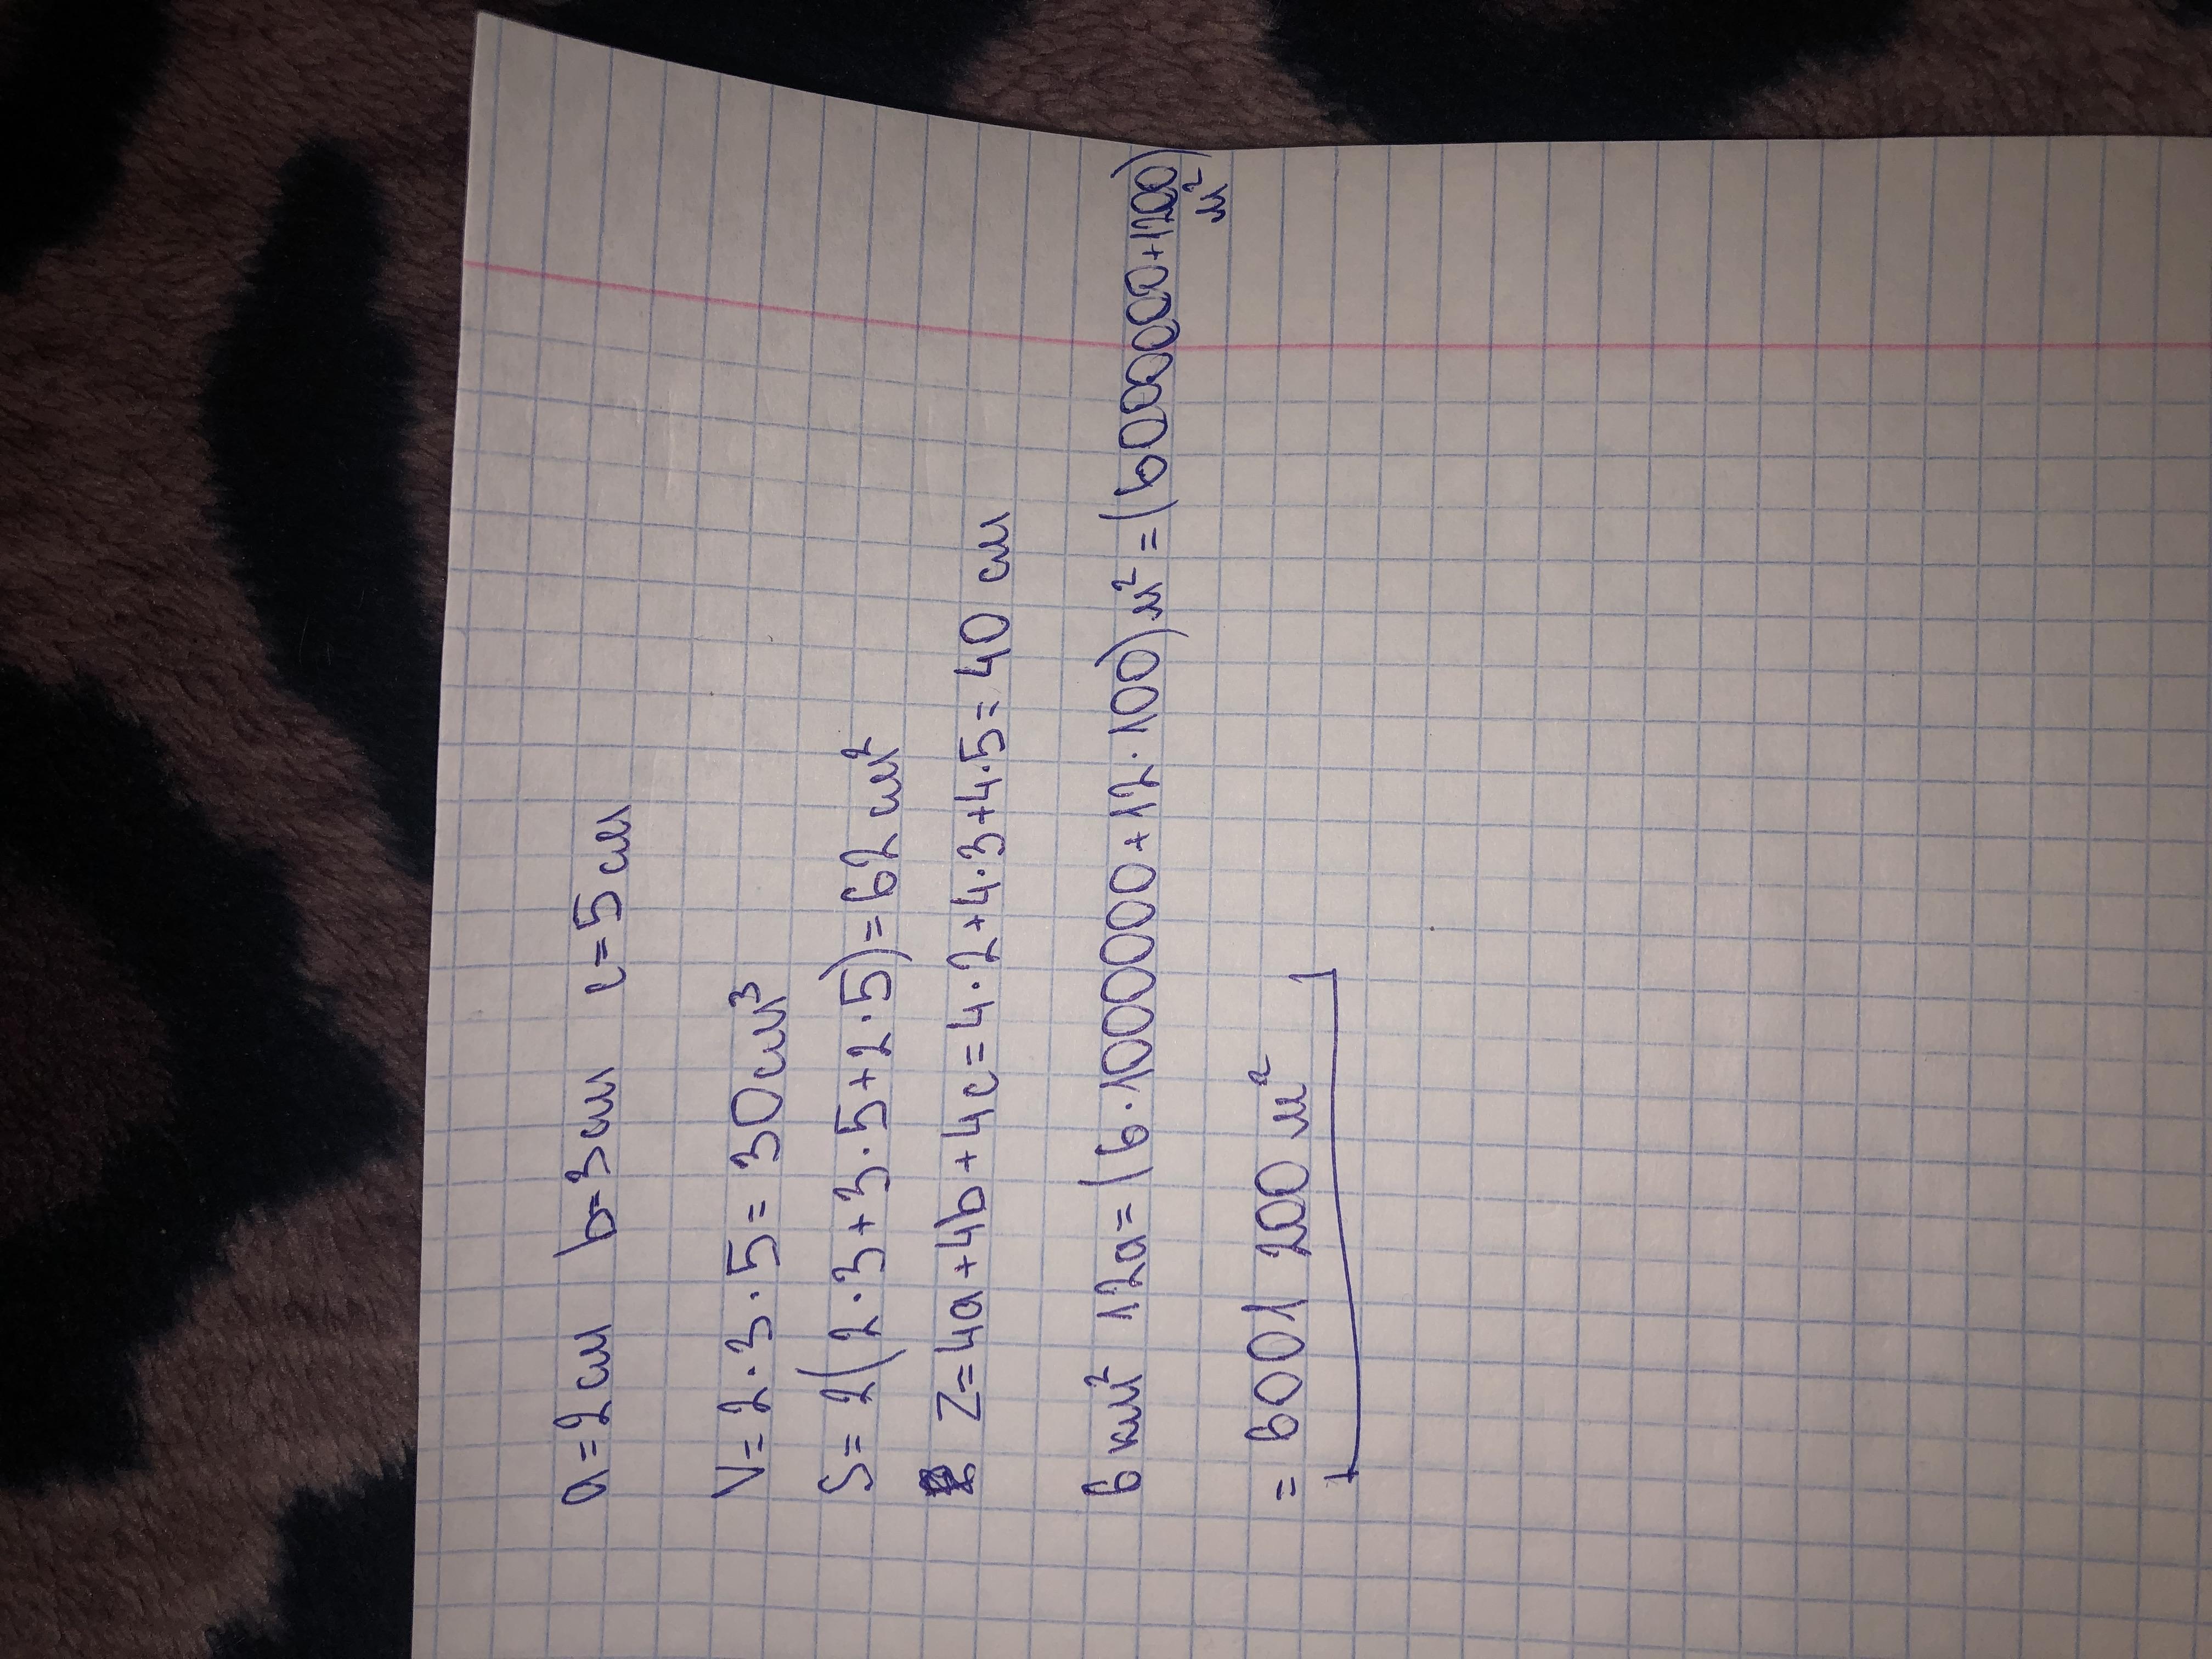 a=2см b=3см c=5см
V=2·3·5=30см³
S=2(2·3+3·5+2·5)=62см²
Z=4a+4b+4c=4·2+4·3+4·5=40 см
6 км² 12а=(6·1000000+12·100)м²=(6000000+1200)
м²
= 6001 200 м²